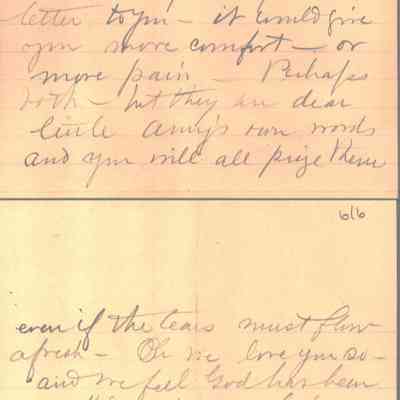 letter to you - it would give
you more comfort - or
more pain - Perhaps
both - but they are dear
little Amy's own words
and you will all prize them
6/6
even if the tears must flow
afresh - Oh we love you so -
and we feel God has been